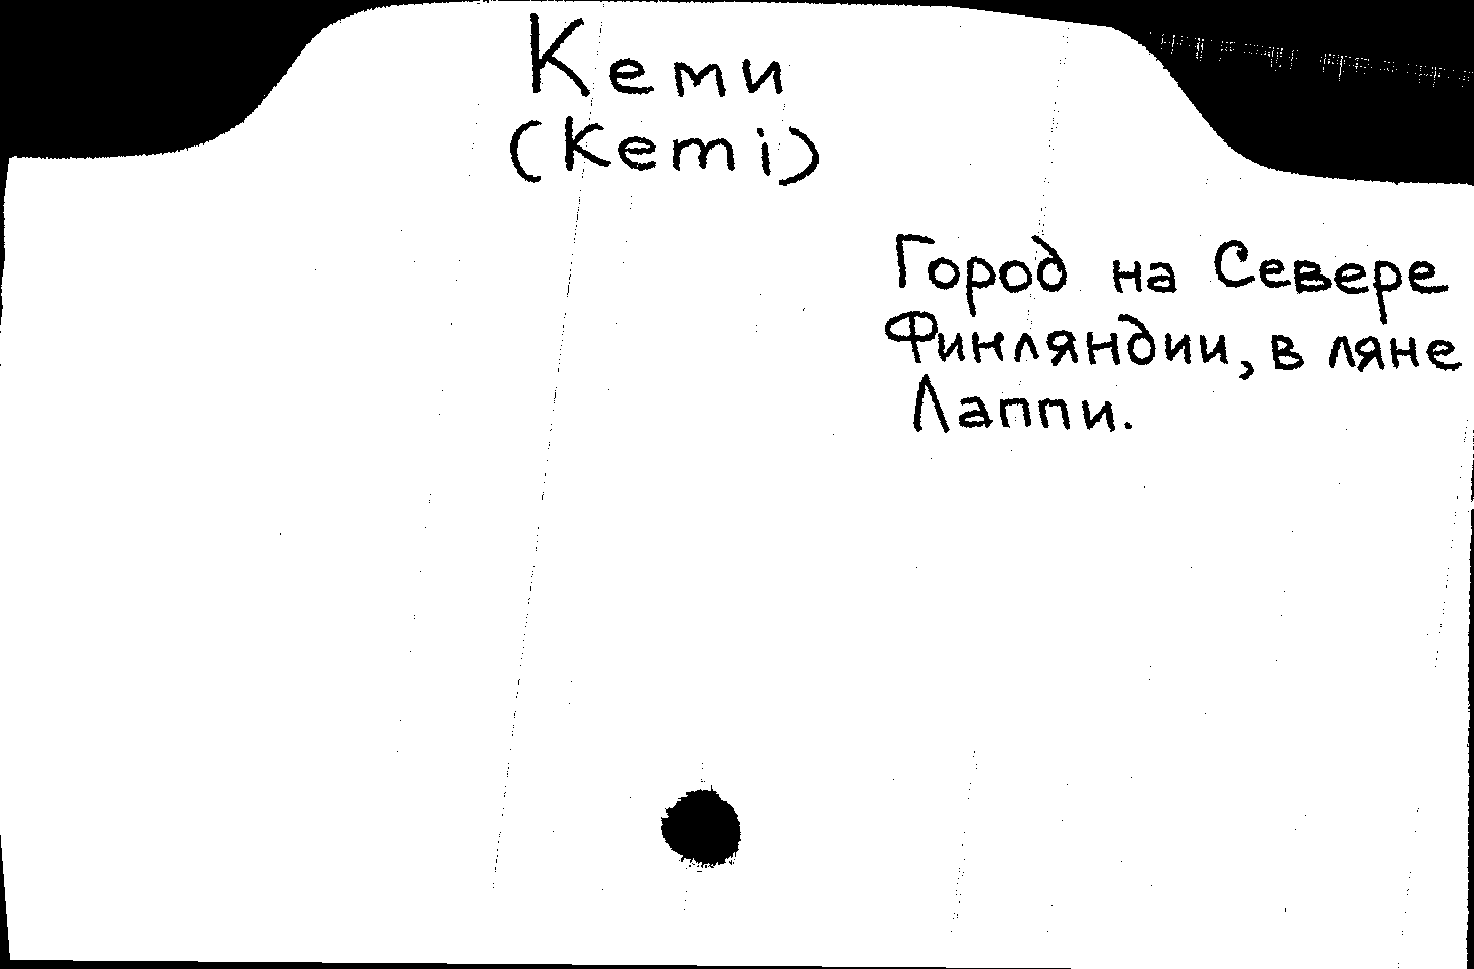 Кеми
(Kemi)
Город на Севере
Финляндии, в ляне
Лаппи.